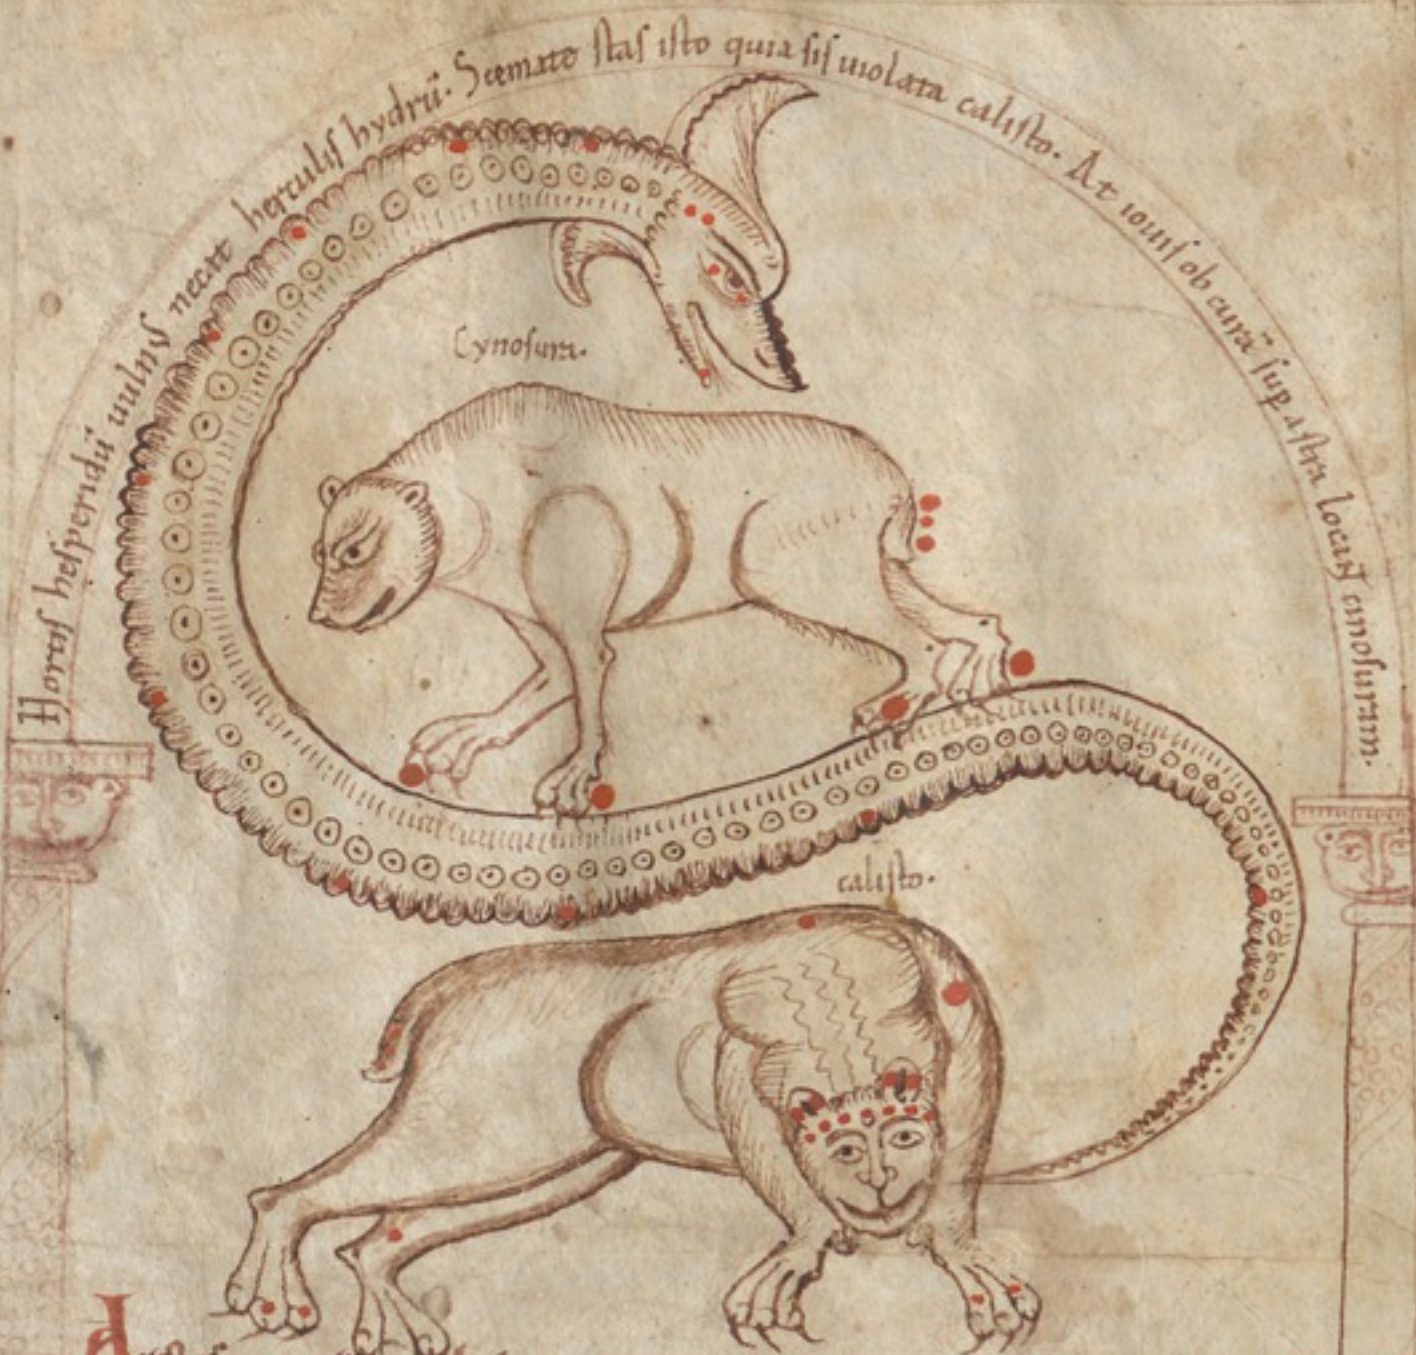 Hortus hesperidū uulnus necat herculis hydrū. Scemate stas isto quia sis uiolata calisto. At iouis ob curā sup astra locant cinosuram.
Cynosura.
calisto.